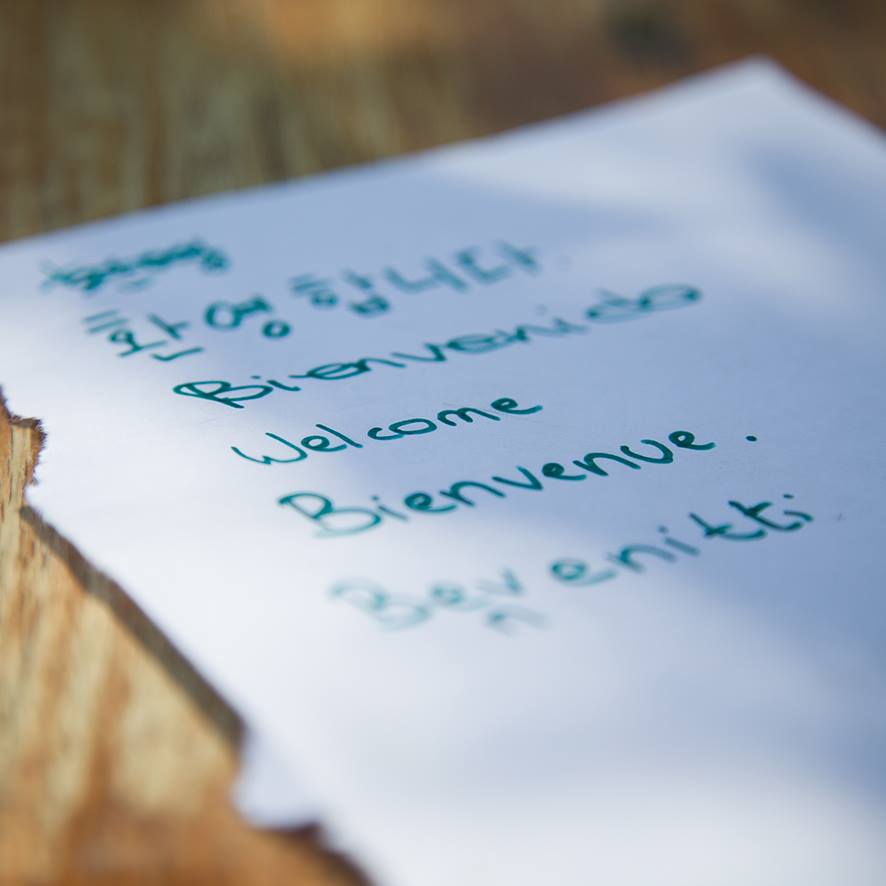 환영합니다
Bienvenido
Welcome
Bienvenue.
Bevenitti